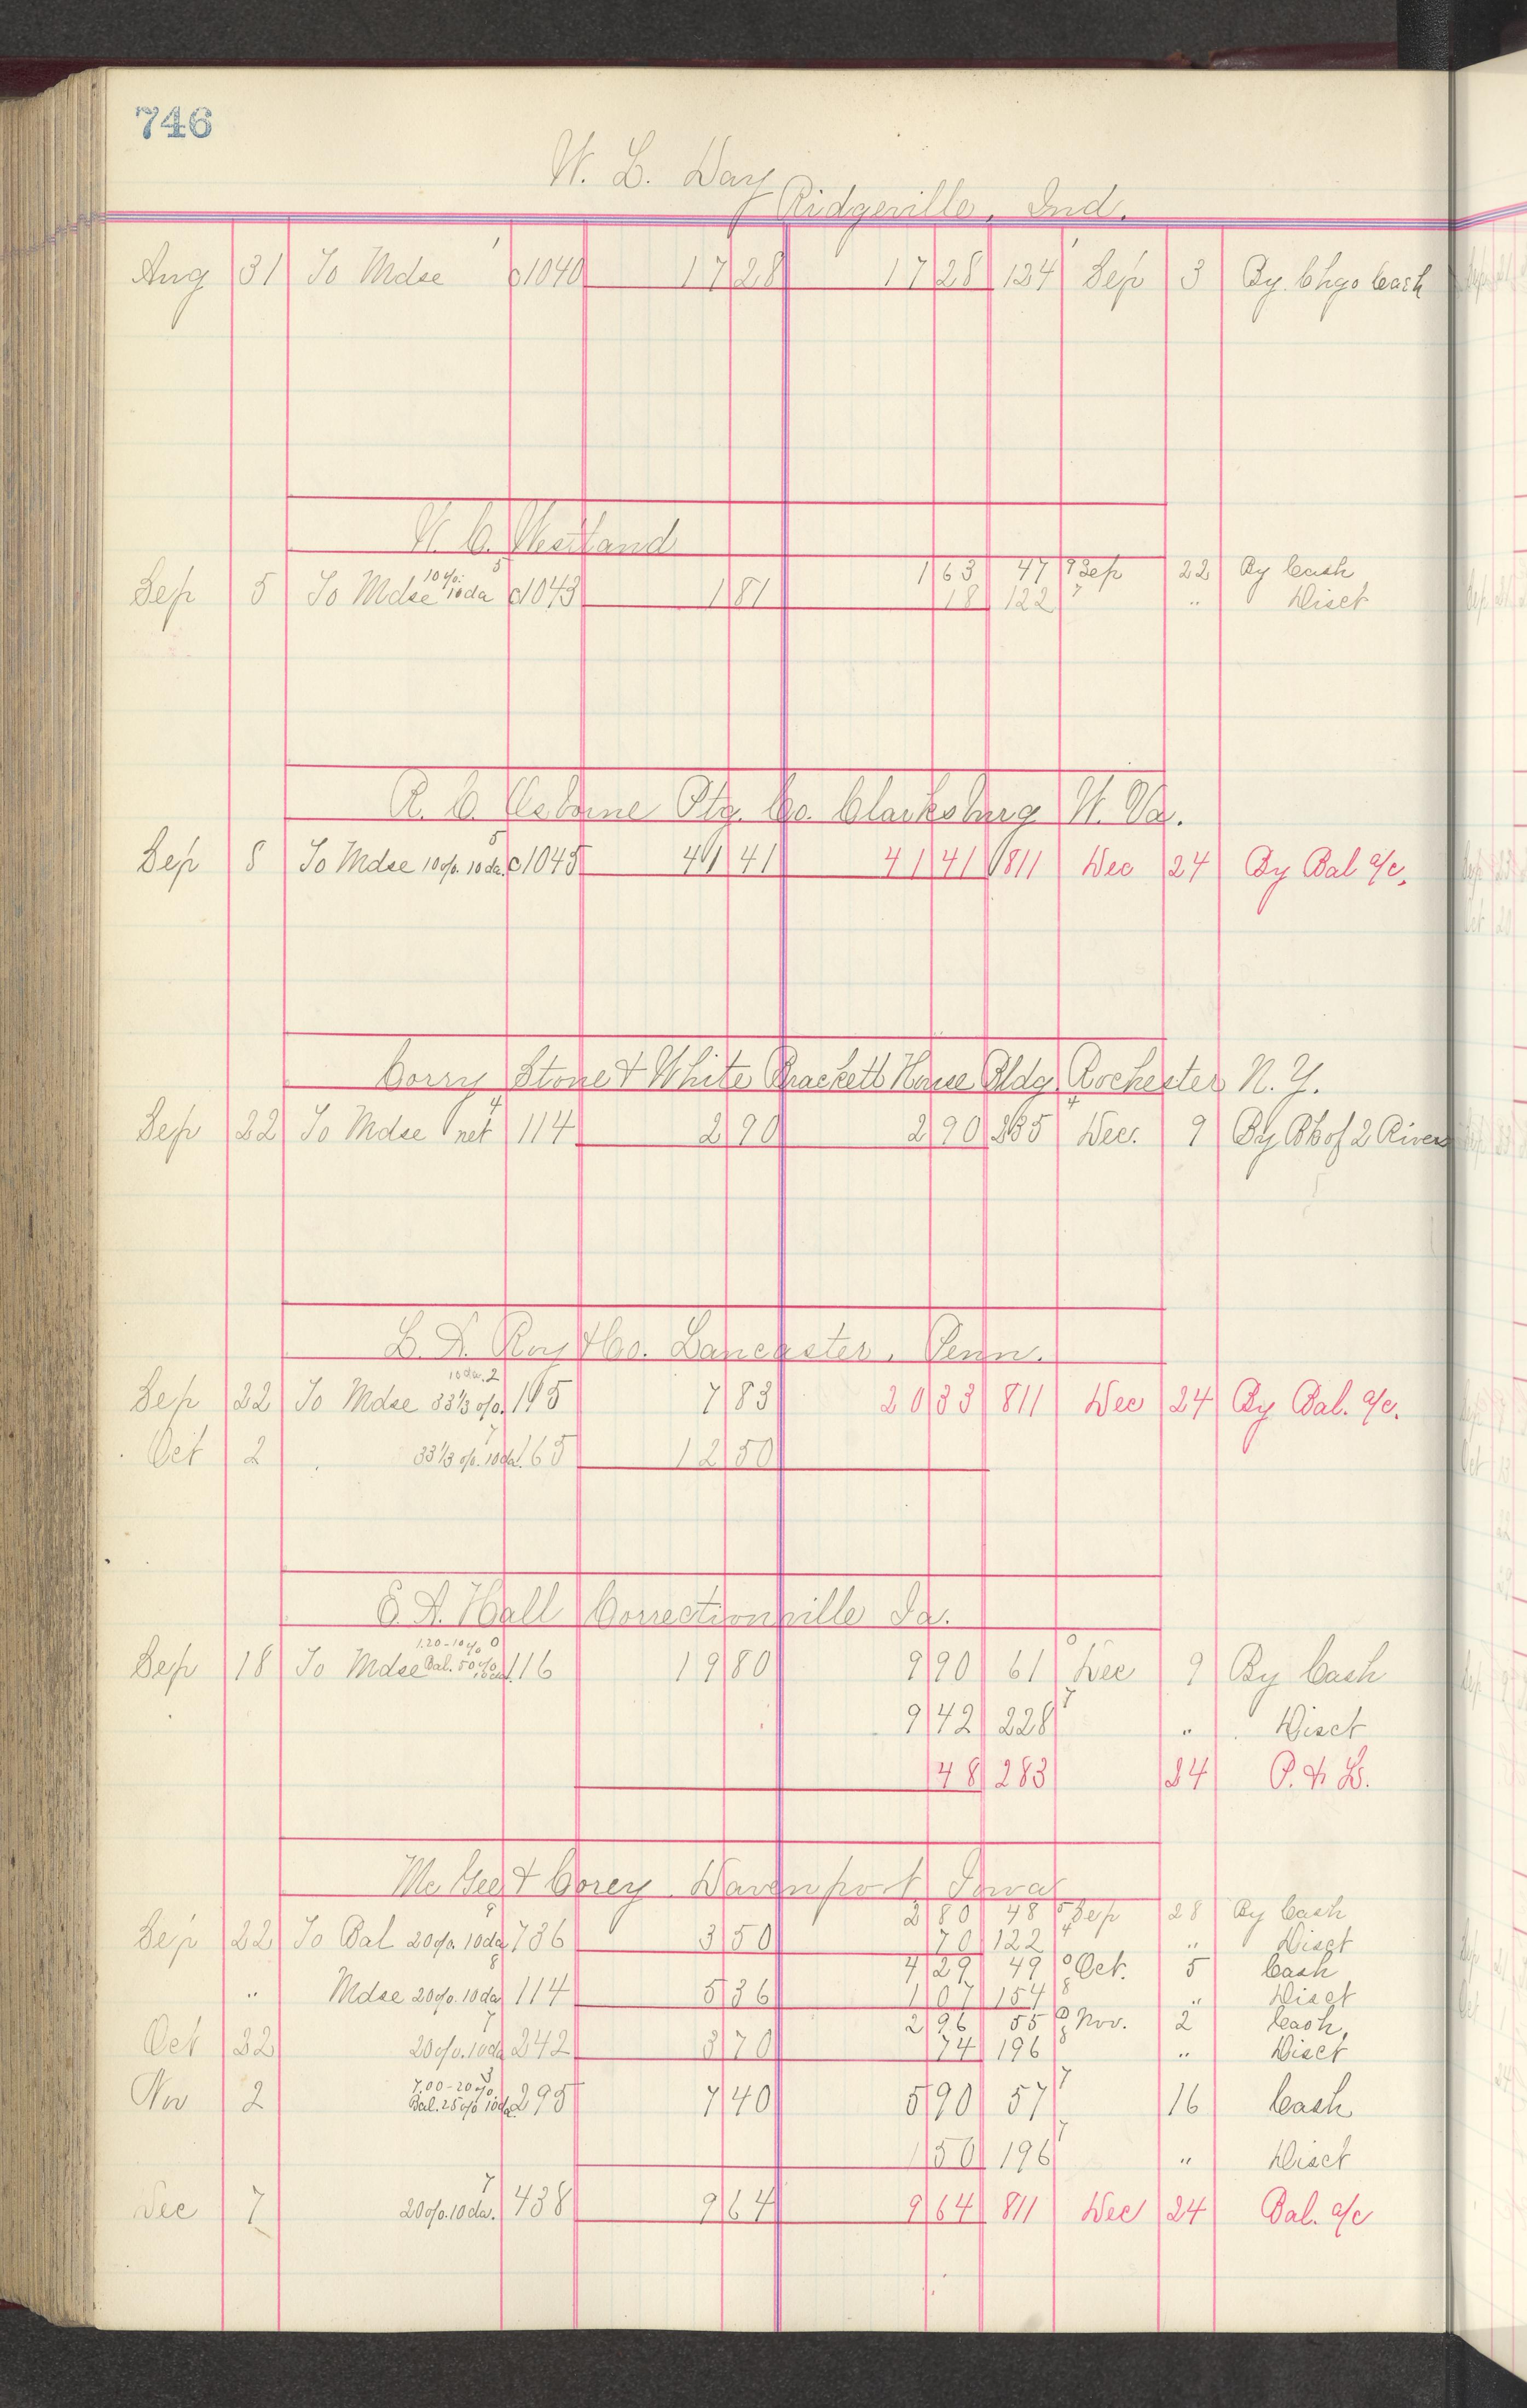 746
W. L. Day
Ridgeville, Ind.
Aug 31 To Mdse c1040 17 28 17 28 134 Sep 3 By Chgo Cash
W. C. Westland
1 63 47 Sep 22 By Cash
Sep 5 To Mdse 10%. 10 da c1043 1 81 18 122 " Disct
R. C. Osborne Ptg. Co. Clarksburg W. Va.
Sep 8 To Mdse 10%. 10 da. c1045 41 41 41 41 811 Dec 24 By Bal a/c.
Corry Stone & White Brackett House Bldg Rochester N. Y.
Sep 22 To Mdse net 114 2 90 2 90 285 Dec. 9 By Bk of 2 Rivers
L. D. Roy & Co. Lancaster, Penn.
10 da. 2
Sep 22 To Mdse 33 1/3 %. 115 7 83 20 33 811 Dec 24 By Bal. a/c.
Oct 2 33 1/3 %. 10 da. 165 12 50
E. A. Hall Correctionville Ia.
1.20 - 10%
Sep 18 To Mdse Bal. 50% 116 19 80 9 90 61 Dec 9 By Cash
9 42 228 " Disct
48 283 24 P. & L.
Mc Gee & Corey Davenport Iowa
2 80 48 Sep 28 By Cash
Sep 22 To Bal 20%. 10 da 736 3 50 70 122 " Disct
4 29 49 Oct. 5 Cash
" Mdse 20%. 10 da 114 5 36 1 07 154 " Disct
2 96 55 Nov. 2 Cash,
Oct 22 20%. 10 da 242 3 70 74 196 " Disct
7.00 - 20%
Nov 2 Bal. 25% 10 da. 295 7 40 5 90 57 16 Cash
1 50 196 " Disct
Dec 7 20%. 10 da. 438 9 64 9 64 811 Dec 24 Bal. a/c